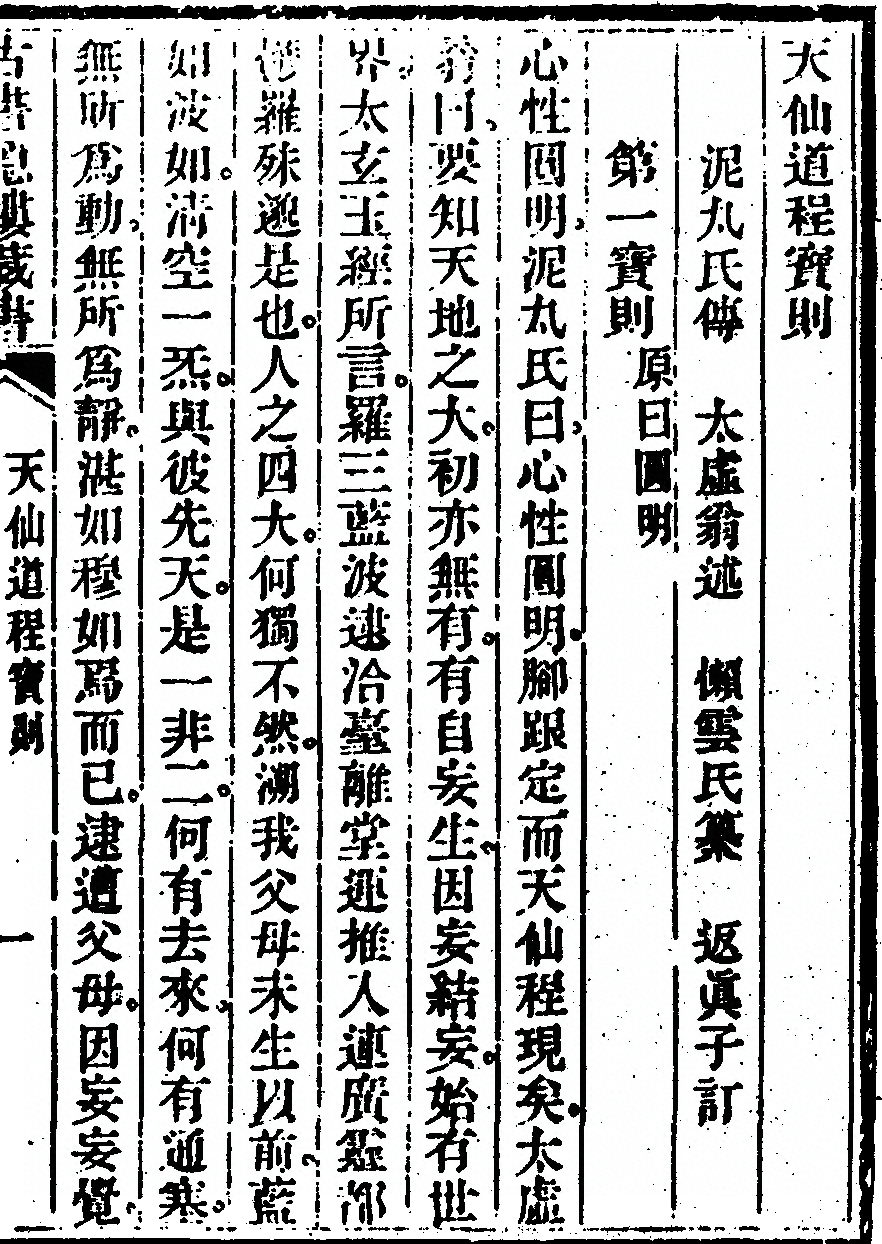 天仙道程寶則
泥丸氏傳　太虛翁述　懶雲氏纂　返眞子訂
第一寶則 原曰圓明
心性圓明泥丸氏曰心性圓明腳跟定而天仙程現矣太虛
翁曰要知天地之大初亦無有有自妄生因妄結妄始有世
界太玄玉經所言羅三藍波逮洽臺離堂運推入連廣靈都
羅殊邈是也人之四大何獨不然溯我父母未生以前藍
如波如淸空一炁與彼先天是一非二何有去來何有通塞
無所爲動無所爲靜湛如穆如焉而已逮遘父母因妄妄覺
古書隱樓藏書　天仙道程寶則　一